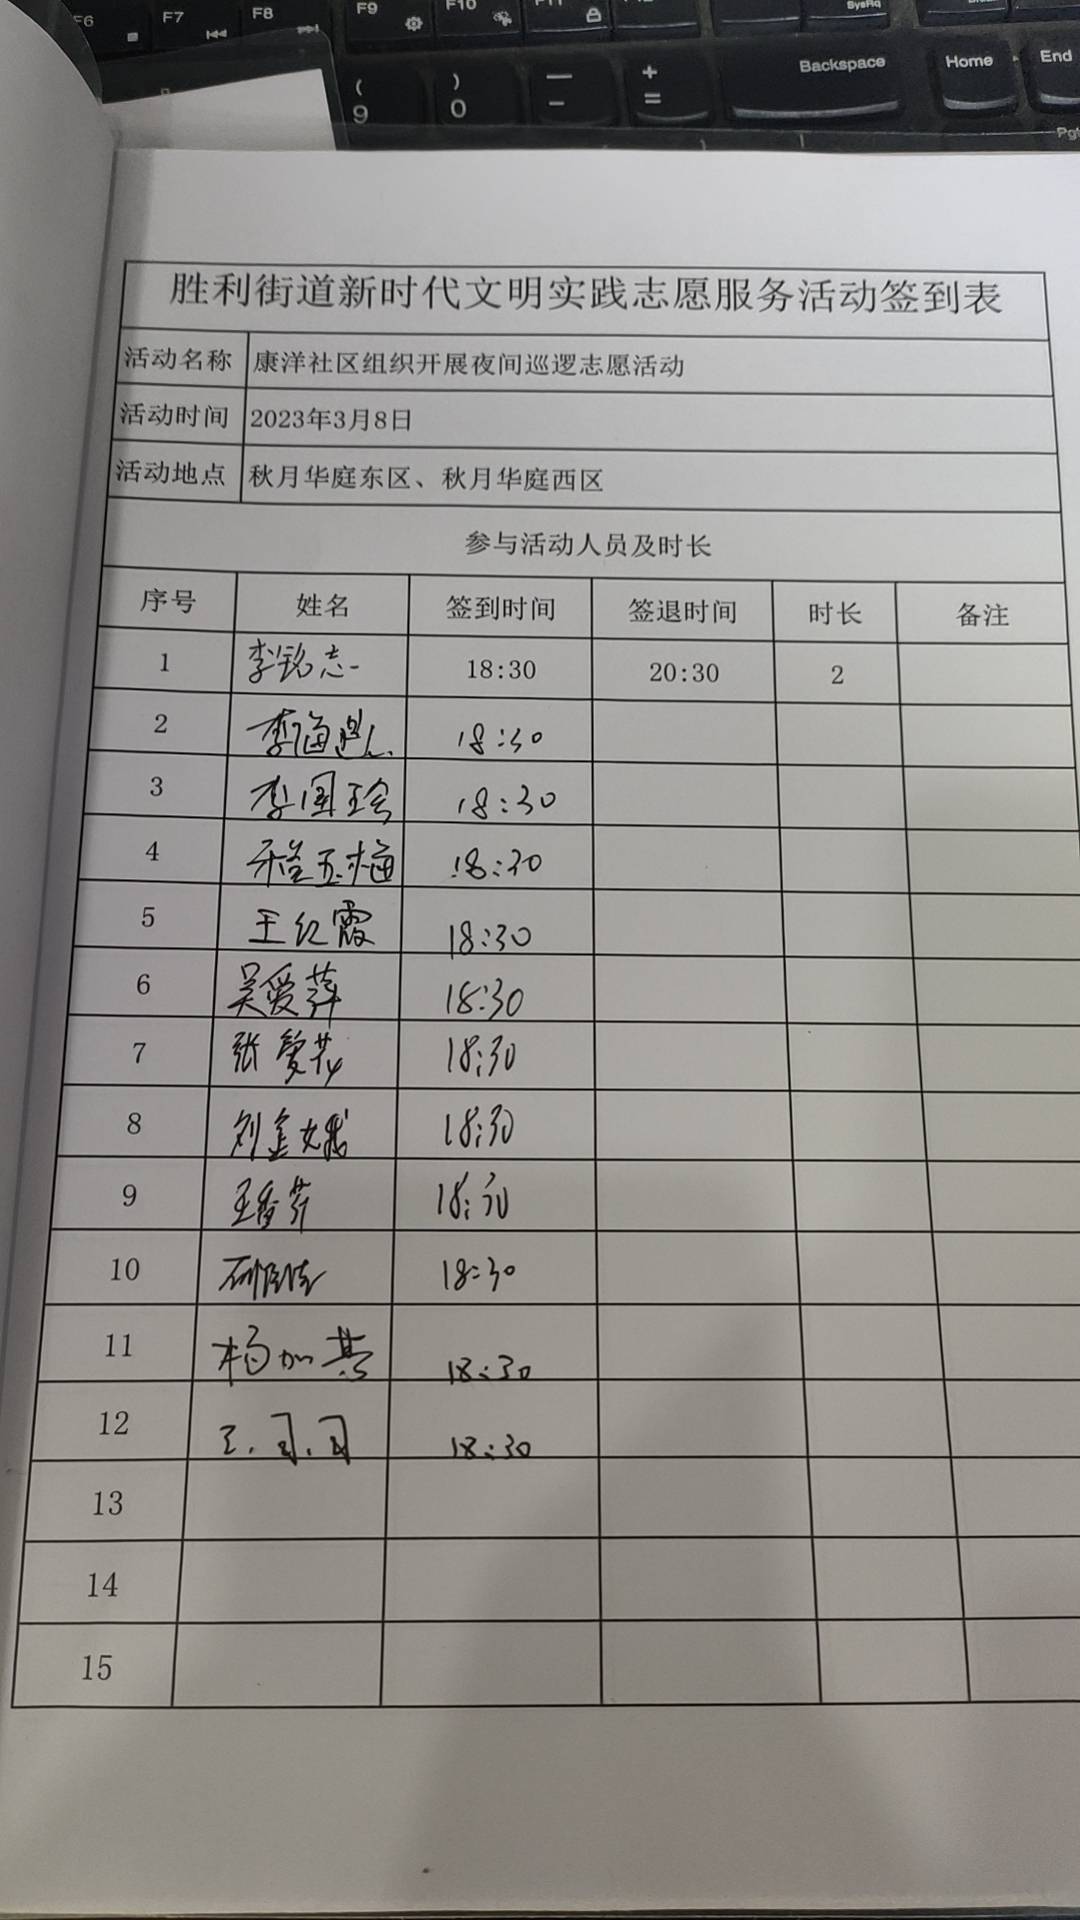 F6 F7 F8 F9 F10 F11 SysRq
( 9 ) 0 — - + = Backspace Home End
胜利街道新时代文明实践志愿服务活动签到表
活动名称 康洋社区组织开展夜间巡逻志愿活动
活动时间 2023年3月8日
活动地点 秋月华庭东区、秋月华庭西区
参与活动人员及时长
序号 姓名 签到时间 签退时间 时长 备注
1 李铭志 18:30 20:30 2
2 18:30
3 李国珍 18:30
4 程玉梅 18:30
5 王红霞 18:30
6 吴爱萍 18:30
7 张爱花 18:30
8 刘金娥 18:30
9 王香芹 18:30
10 18:30
11 杨加其 18:30
12 18:30
13
14
15